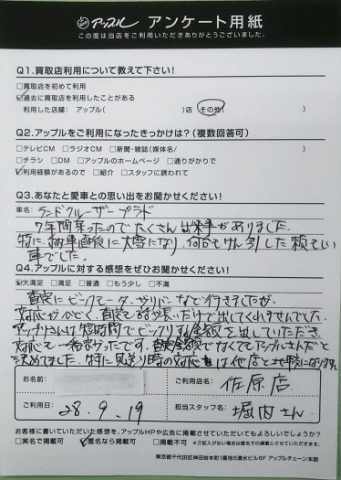 アップル アンケート用紙
この度は当店をご利用いただきありがとうございました。
Q1.買取店利用について教えて下さい!
□買取店を初めて利用
☑過去に買取店を利用したことがある
利用した店舗: アップル( )店 その他( )
Q2.アップルをご利用になったきっかけは?(複数回答可)
□テレビCM □ラジオCM □新聞・雑誌(媒体名/ )
□チラシ □DM □アップルのホームページ □通りがかりで
☑利用経験があるので □紹介 □スタッフに誘われて
Q3.あなたと愛車との思い出をお聞かせください!
車名: ランドクルーザープラド
7年間乗ったのでたくさん出来事がありました。
特に、納車直後に大雪になり、何台もけん引した頼もしい
車でした。
Q4.アップルに対する感想をぜひお聞かせください!
☑大満足 □満足 □普通 □もう少し □不満
査定にビックモーター、ガリバーなど行きましたが、
対応がひどく、査定も時間が長いだけで出してくれませんでした。
アップルさんは短時間でビックリする金額を出していただき、
対応も一番良かったです。査定金額でなくてもアップルさんだと
決めてました。特に見送り時の対応は他店と比較になります。
お名前:
ご利用店名: 佐原店
ご利用日: 28.9.19
担当スタッフ名: 堀内さん
お客様に書いていただいた感想を、アップルHPや広告に掲載させていただいてもよろしいでしょうか?
□実名で掲載可 ☑匿名なら掲載可 □掲載不可 ※ご記入がない場合は匿名での掲載とさせていただきます。
東京都千代田区神田岩本町1番地5清水ビル6F アップルチェーン本部